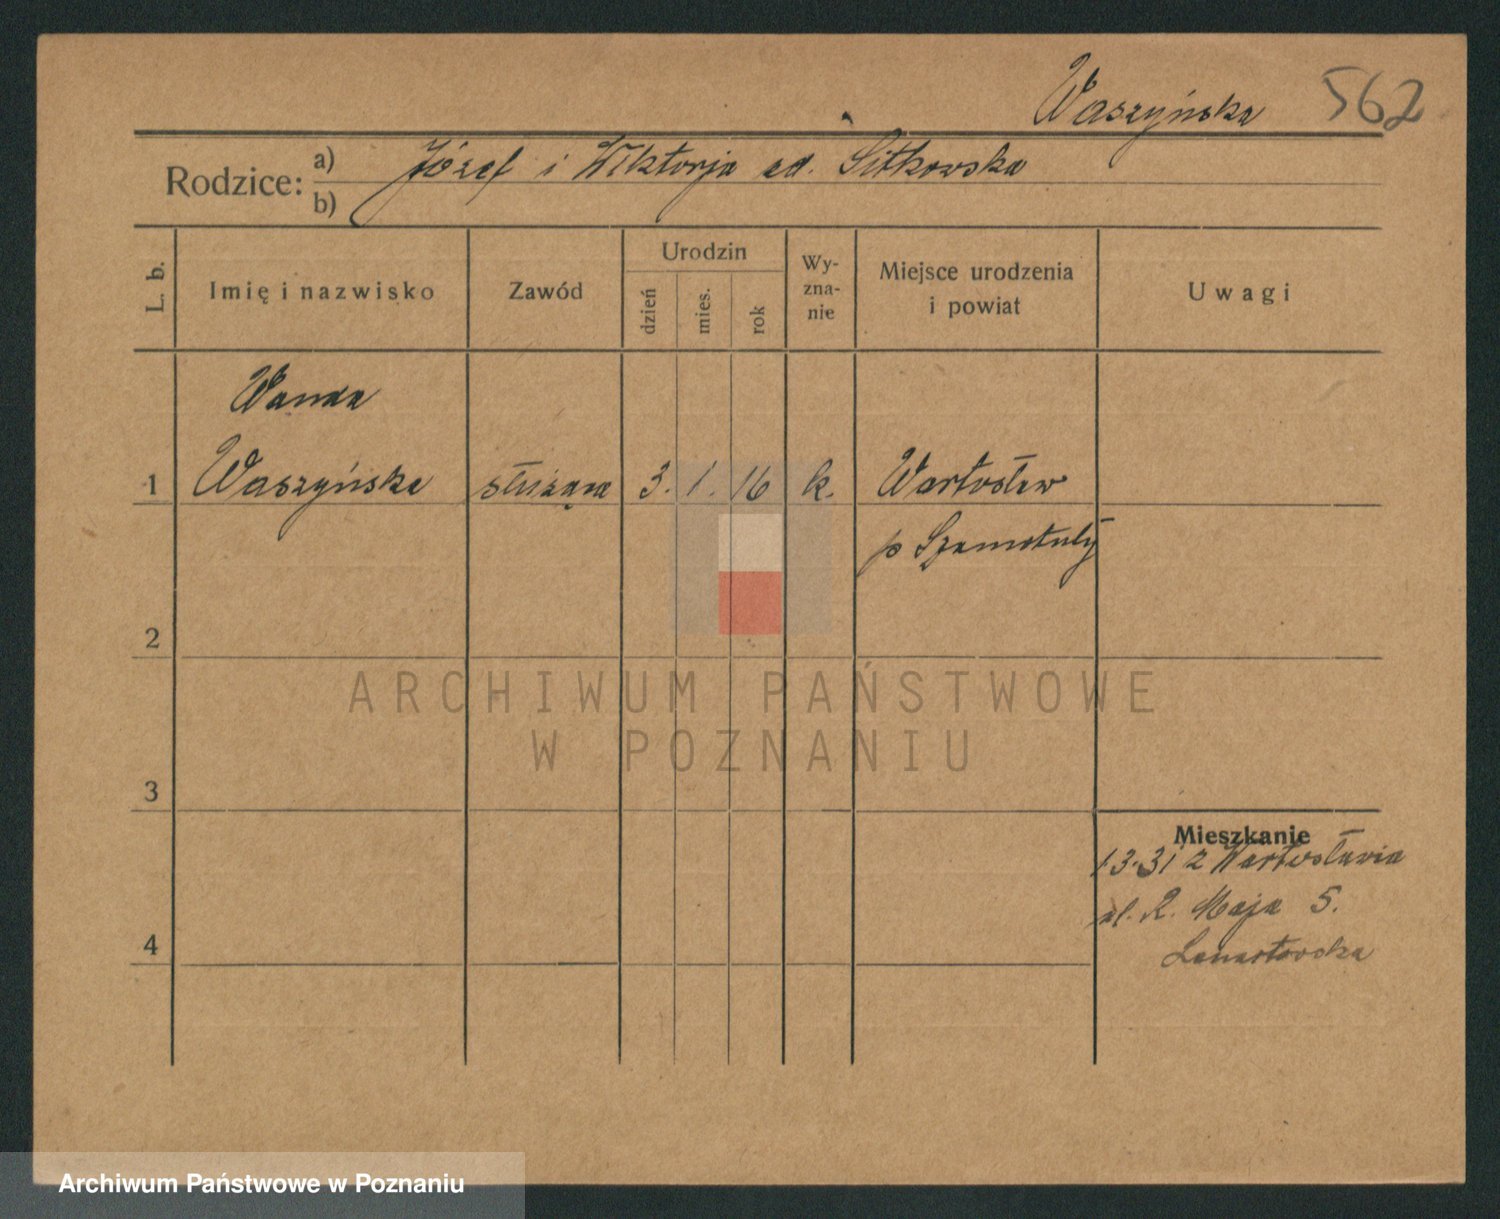 Waszyńska 562
Rodzice: a) Józef i Wiktorja zd. Sitkowska
b)
L. b.
Imię i nazwisko
Zawód
Urodzin
dzień
mies.
rok
Wy-
zna-
nie
Miejsce urodzenia
i powiat
Uwagi
Wanda
1 Waszyńska służąca 3. 1. 16 k. Wartosław
p Szamotuły
2
3
4
Mieszkanie
13.31 z Wartosławia
ul. 3. Maja 5.
Lenartowska
ARCHIWUM PAŃSTWOWE
W POZNANIU
Archiwum Państwowe w Poznaniu